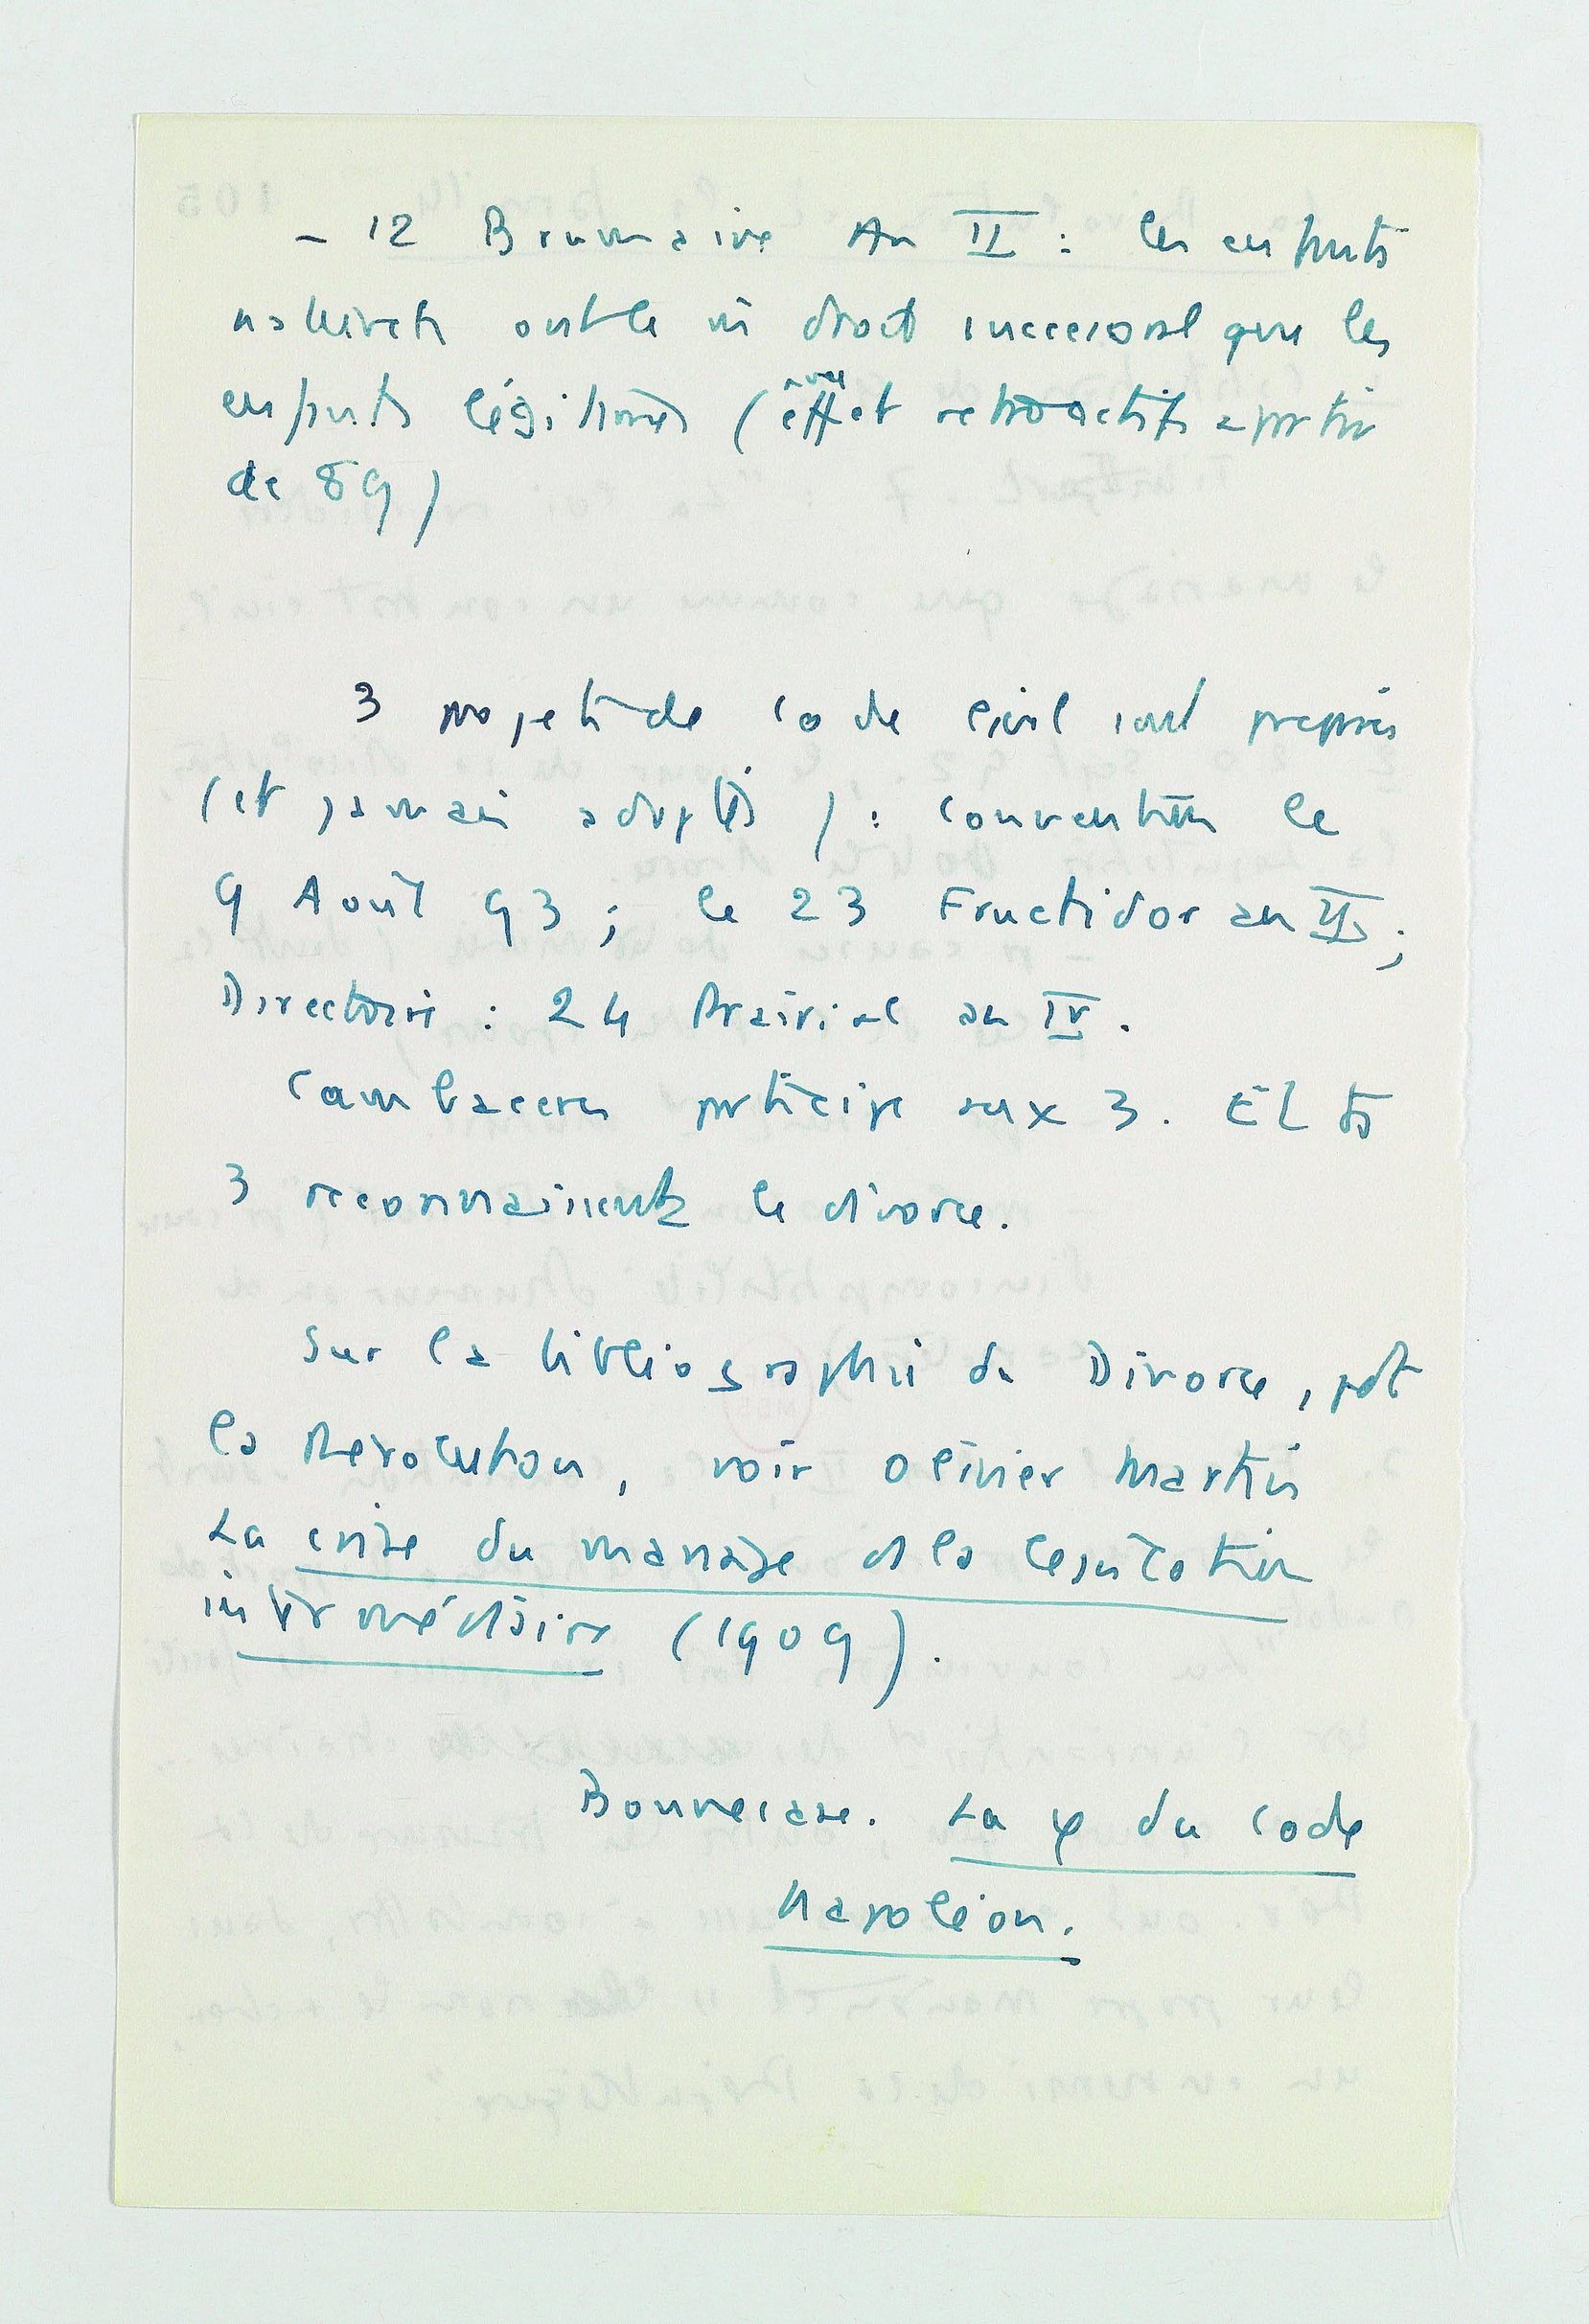 - 12 Brumaire An II : les enfants
naturels ont le m̂ droit successoral que les
enfants légitimes (avec effet retroactif à partir
de 89)
3 projets de code civil sont préparés
(et jamais adoptés) : Convention le
9 Août 93 ; le 23 Fructidor an II ;
Directoire : 24 Prairial an IV.
Cambacérès participe aux 3. Et ts
3 reconnaissent le divorce.
Sur la bibliographie du Divorce, pdt
la Révolution, voir Olivier Martin
La crise du mariage ds la législation
intermédiaire (1909).
Bonnecase. La φ du Code
Napoléon.